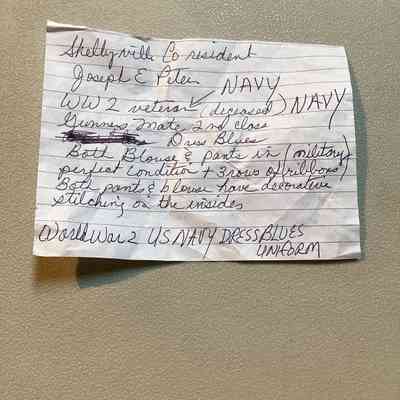 Shellyville Co resident
Joseph E Peter
NAVY
WW2 veteran (deceased) NAVY
Gunners Mate 2nd Class
Dress Blues
Both Blouse & pants in (military
perfect condition + 3 rows of ribbons)
Both pants & blouse have decorative
stitching on the insides
World War 2 US NAVY DRESS BLUES
UNIFORM